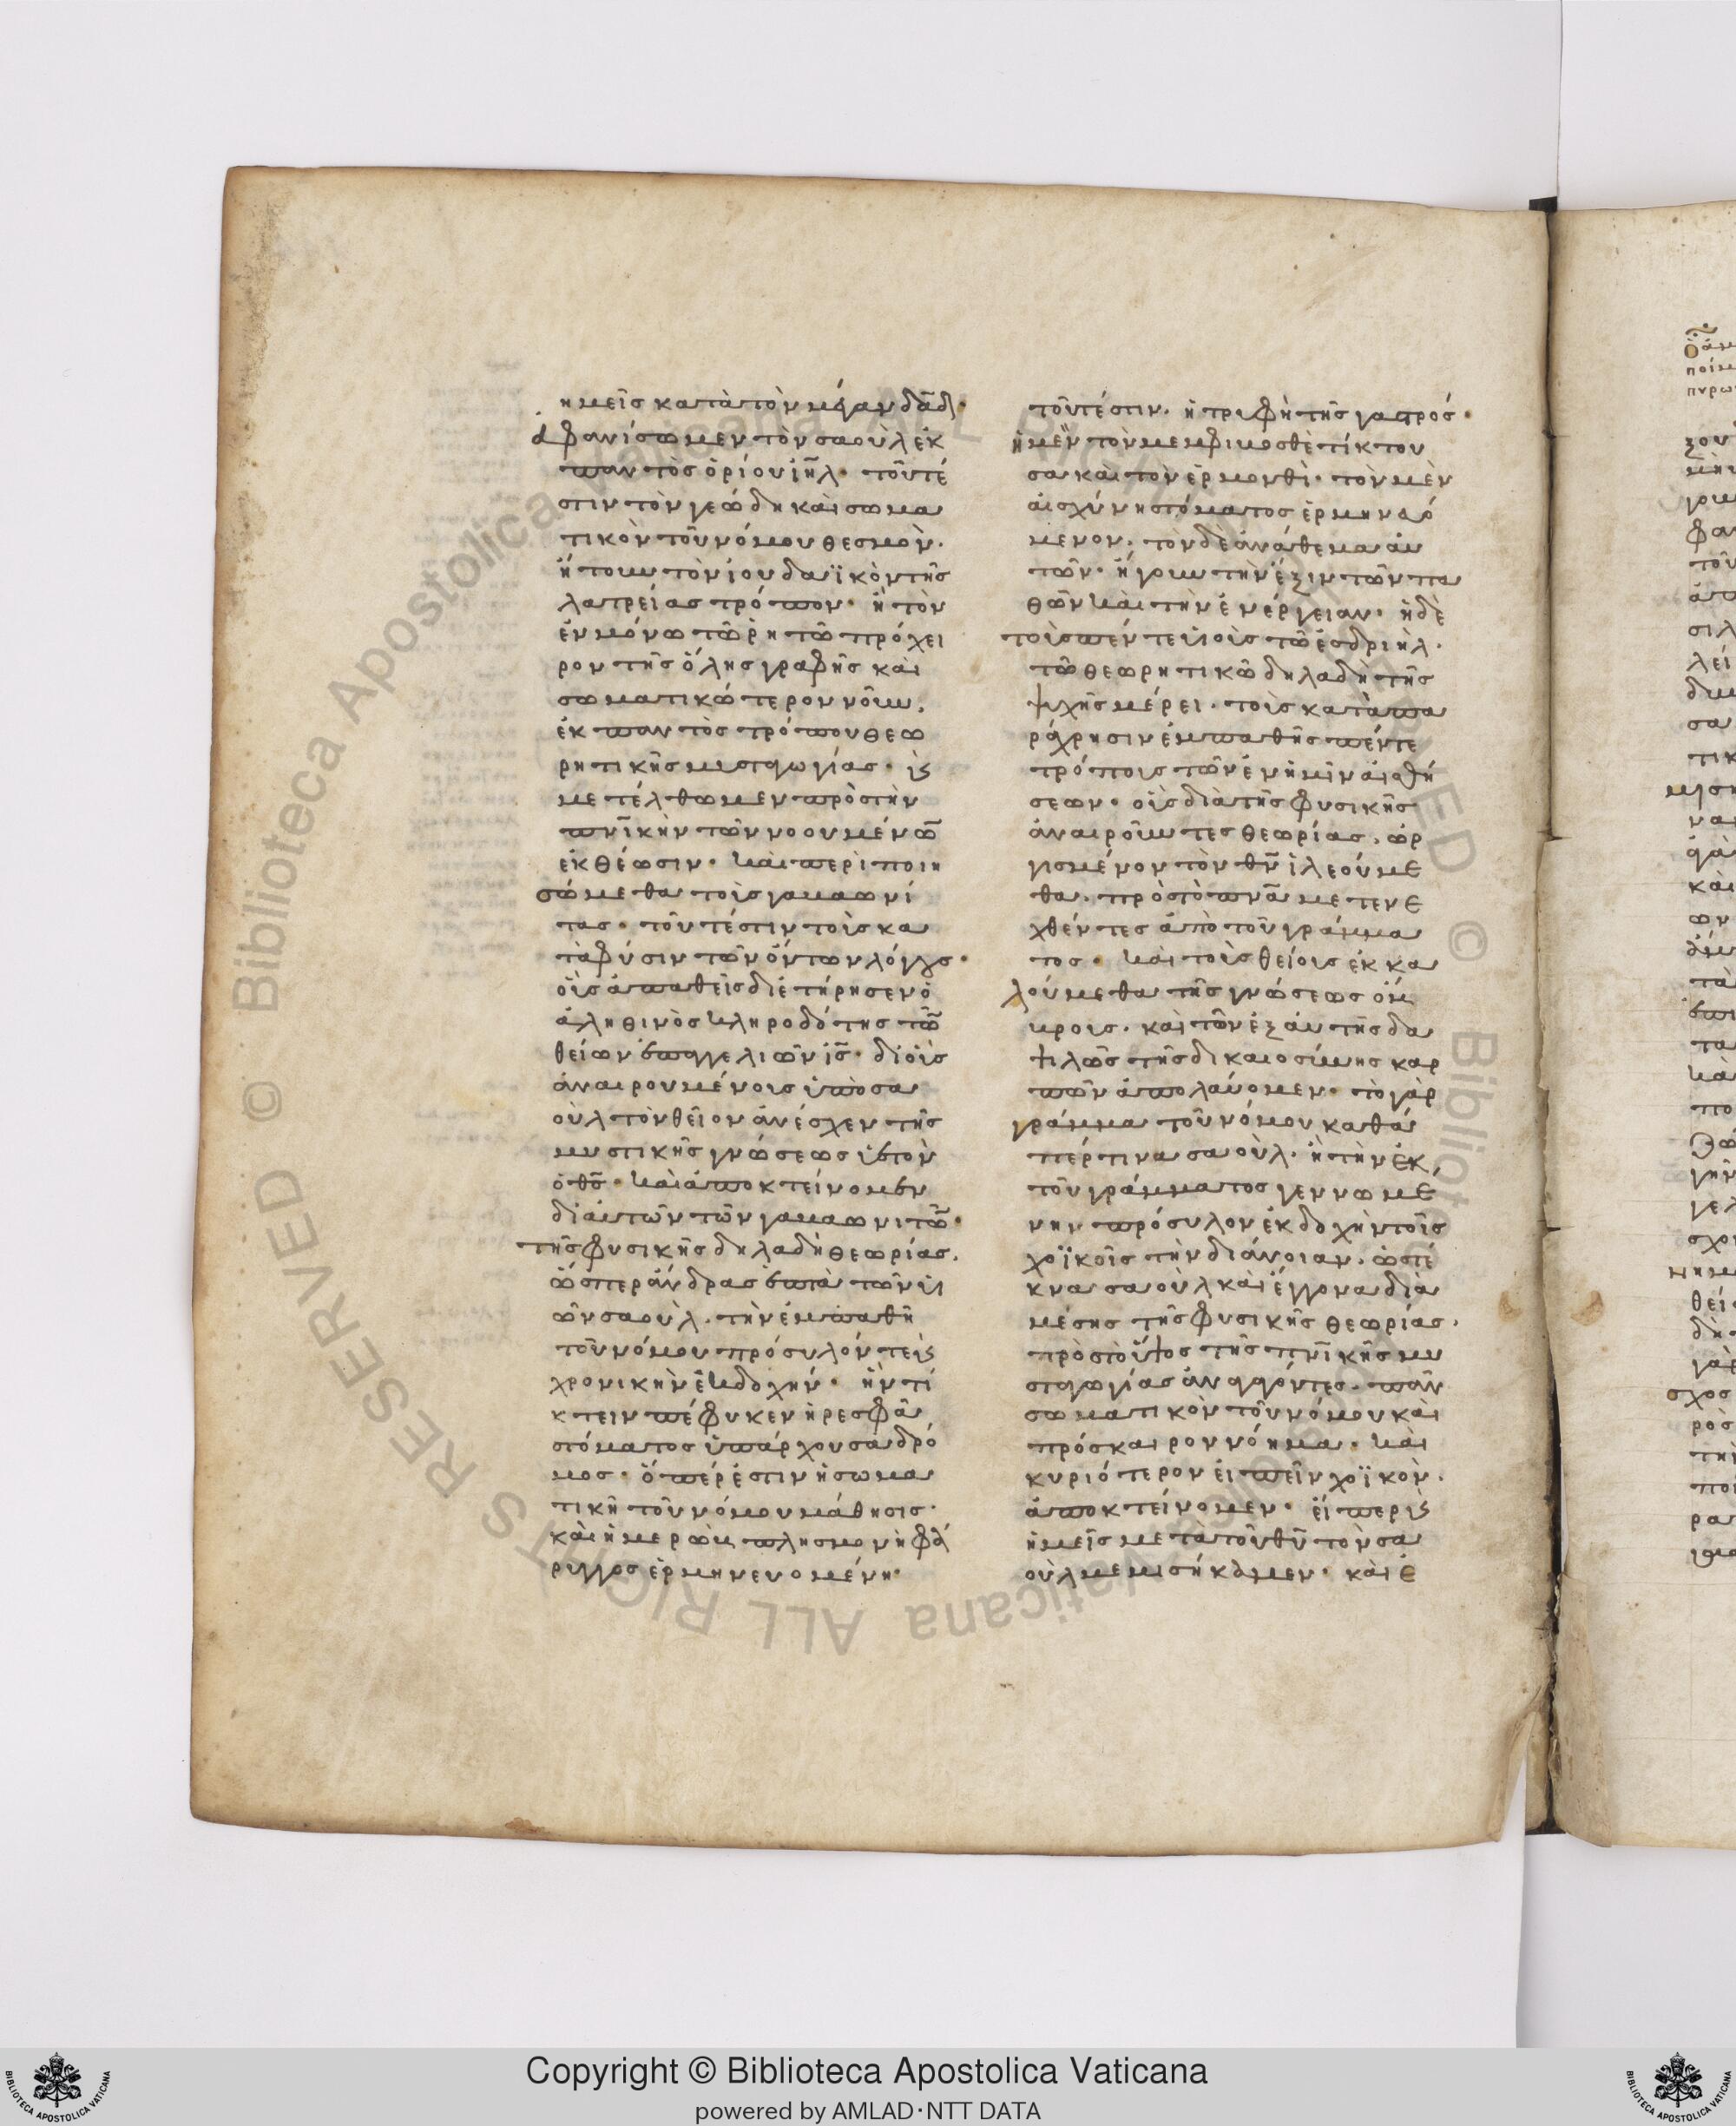 ημεῖς κατὰ τὸν μέγαν δᾱδ·
ἀφανίσωμεν τὸν σαοὺλ ἐκ
παντὸς ὁρίου ιηλ· τουτέ
στιν τὸν γεώδη καὶ σωμα
τικὸν τοῦ νόμου θεσμὸν.
ἤγουν τὸν ἰουδαϊκὸν τῆς
λατρείας τρόπον· ἢ τὸν
ἐν μόνω τῶ ρητῶ πρόχει
ρον τῆς ὅλης γραφῆς καὶ
σωματικώτερον νοῦν,
ἐκ παντὸς τρόπου θεω
ρητικῆς μυσταγωγίας· ϗ
μετέλθωμεν πρὸς τὴν
πνικὴν τῶν νοουμένων
ἐκθέωσιν· καὶ περιποιη
σώμεθα τοῖς γαβαωνί
τας· τουτέστιν τοῖς κα
τὰ φύσιν τῶν ὄντων λόγοις·
οἷς ἀπαθεῖς διετήρησεν ὁ
ἀληθινὸς κληροδότης τῶν
θείων ἐπαγγελιῶν ις· δι' οἷς
ἀναιρουμένοις ὑπὸ σα
οὺλ τὸν θεῖον ἀνέσχεν τῆς
μυστικῆς γνώσεως ὑετὸν
ὁ θς· καὶ ἀποκτείνομεν
δι' αὐτῶν τῶν γαβαωνιτῶν·
τῆς φυσικῆς δηλαδὴ θεωρίας.
ὥσπερ ἄνδρας ἑπτὰ τῶν υἱ
ῶν σαοὺλ. τὴν ἐμπαθῆ
τοῦ νόμου πρόσυλόν τε ϗ
χρονικὴν ἐκδοχήν· ἣν τί
κτειν πέφυκεν ἡ ρεσφὰ
στόματος ὑπάρχουσα δρό
μος· ὅπερ ἐστιν ἡ σωμα
τικὴ τοῦ νόμου μάθησις·
καὶ ἡ μερὼβ πλησμονὴ φά
ρυγγος ἑρμηνευομένη·
τουτέστιν. ἡ τρυφὴ τῆς γαστρός·
ἡ μὲν τὸν μεμφιβοσθὲ τίκτου
σα καὶ τὸν ἐρμονθὶ· τὸν μὲν
αἰσχύνη στόματος ἑρμηνευό
μενον. τὸν δὲ ἀνάθεμα αὐ
τῶν· ἤγουν τὴν ἕξιν τῶν πα
θῶν καὶ τὴν ἐνέργειαν· ἡ δὲ
τοὺς πέντε υἱοὺς τῶ ἐσδριὴλ.
τῶ θεωρητικῶ δηλαδὴ τῆς
ψυχῆς μέρει. τοῖς κατὰ πα
ράχρησιν ἐμπαθῆς πέντε
τρόποις τῶν ἐν ἡμῖν αἰσθή
σεων· οὓς διὰ τῆς φυσικῆς
ἀναιροῦντες θεωρίας, ὠρ
γισμένον τὸν θν ἱλεούμε
θα. πρὸς τὸ πνα μετενε
χθέντες ἀπὸ τοῦ γράμμα
τος· καὶ τοῖς θείοις ἐκ κα
λούμεθα τῆς γνώσεως ὄμ
βροις. καὶ τῶν ἐξ αὐτῆς δα
ψιλῶς τῆς δικαιοσύνης καρ
πῶν ἀπολαύομεν· τὸ γὰρ
γράμμα τοῦ νόμου καθά
πέρ τινα σαοὺλ. ἢ τὴν ἐκ
τοῦ γράμματος γεννωμέ
νην πρόσυλον ἐκδοχὴν τοῖς
χοϊκοῖς τὴν διάνοιαν. ὡς τέ
κνα σαοὺλ καὶ ἔγγονα διὰ
μέσης τῆς φυσικῆς θεωρίας.
πρὸς τὸ ὕψος τῆς πνικῆς μυ
σταγωγίας ἀναγαγόντες. πᾶν
σωματικὸν τοῦ νόμου καὶ
πρόσκαιρον νόημα· καὶ
κυριώτερον εἰπεῖν χοϊκὸν.
ἀποκτείνομεν· εἴπερ ϗ
ἡμεῖς μετὰ τοῦ θυ τὸν σα
οὺλ μεμισήκαμεν· καὶ ἐ
Copyright © Biblioteca Apostolica Vaticana
powered by AMLAD·NTT DATA